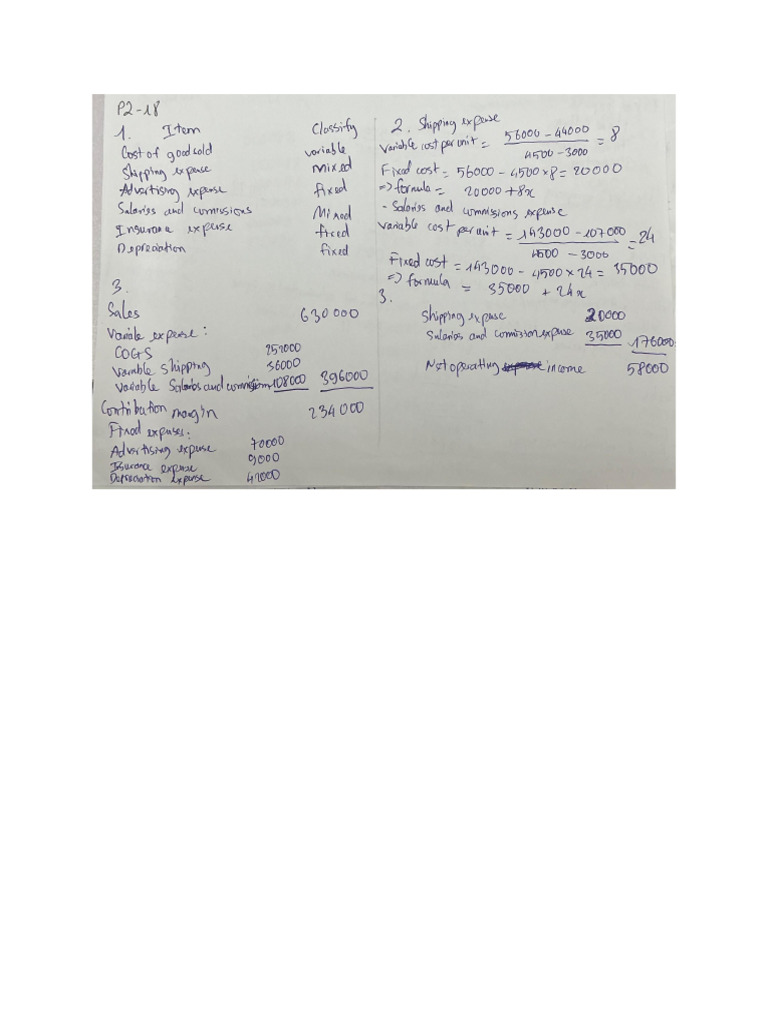 P2-18
1. Item Classify
Cost of good sold variable
Shipping expense Mixed
Advertising expense fixed
Salaries and commissions Mixed
Insurance expense fixed
Depreciation fixed
3.
Sales 630000
Variable expense:
COGS 252000
Variable shipping 36000
Variable Salaries and commission 108000 396000
Contribution margin 234000
Fixed expenses:
Advertising expense 70000
Insurance expense 9000
Depreciation expense 42000
2. Shipping expense
Variable cost per unit = 56000 - 44000 / 4500 - 3000 = 8
Fixed cost = 56000 - 4500 × 8 = 20000
=> formula = 20000 + 8x
- Salaries and commissions expense
Variable cost per unit = 143000 - 107000 / 4500 - 3000 = 24
Fixed cost = 143000 - 4500 × 24 = 35000
=> formula = 35000 + 24x
3.
Shipping expense 20000
Salaries and commission expense 35000 176000
Net operating income 58000